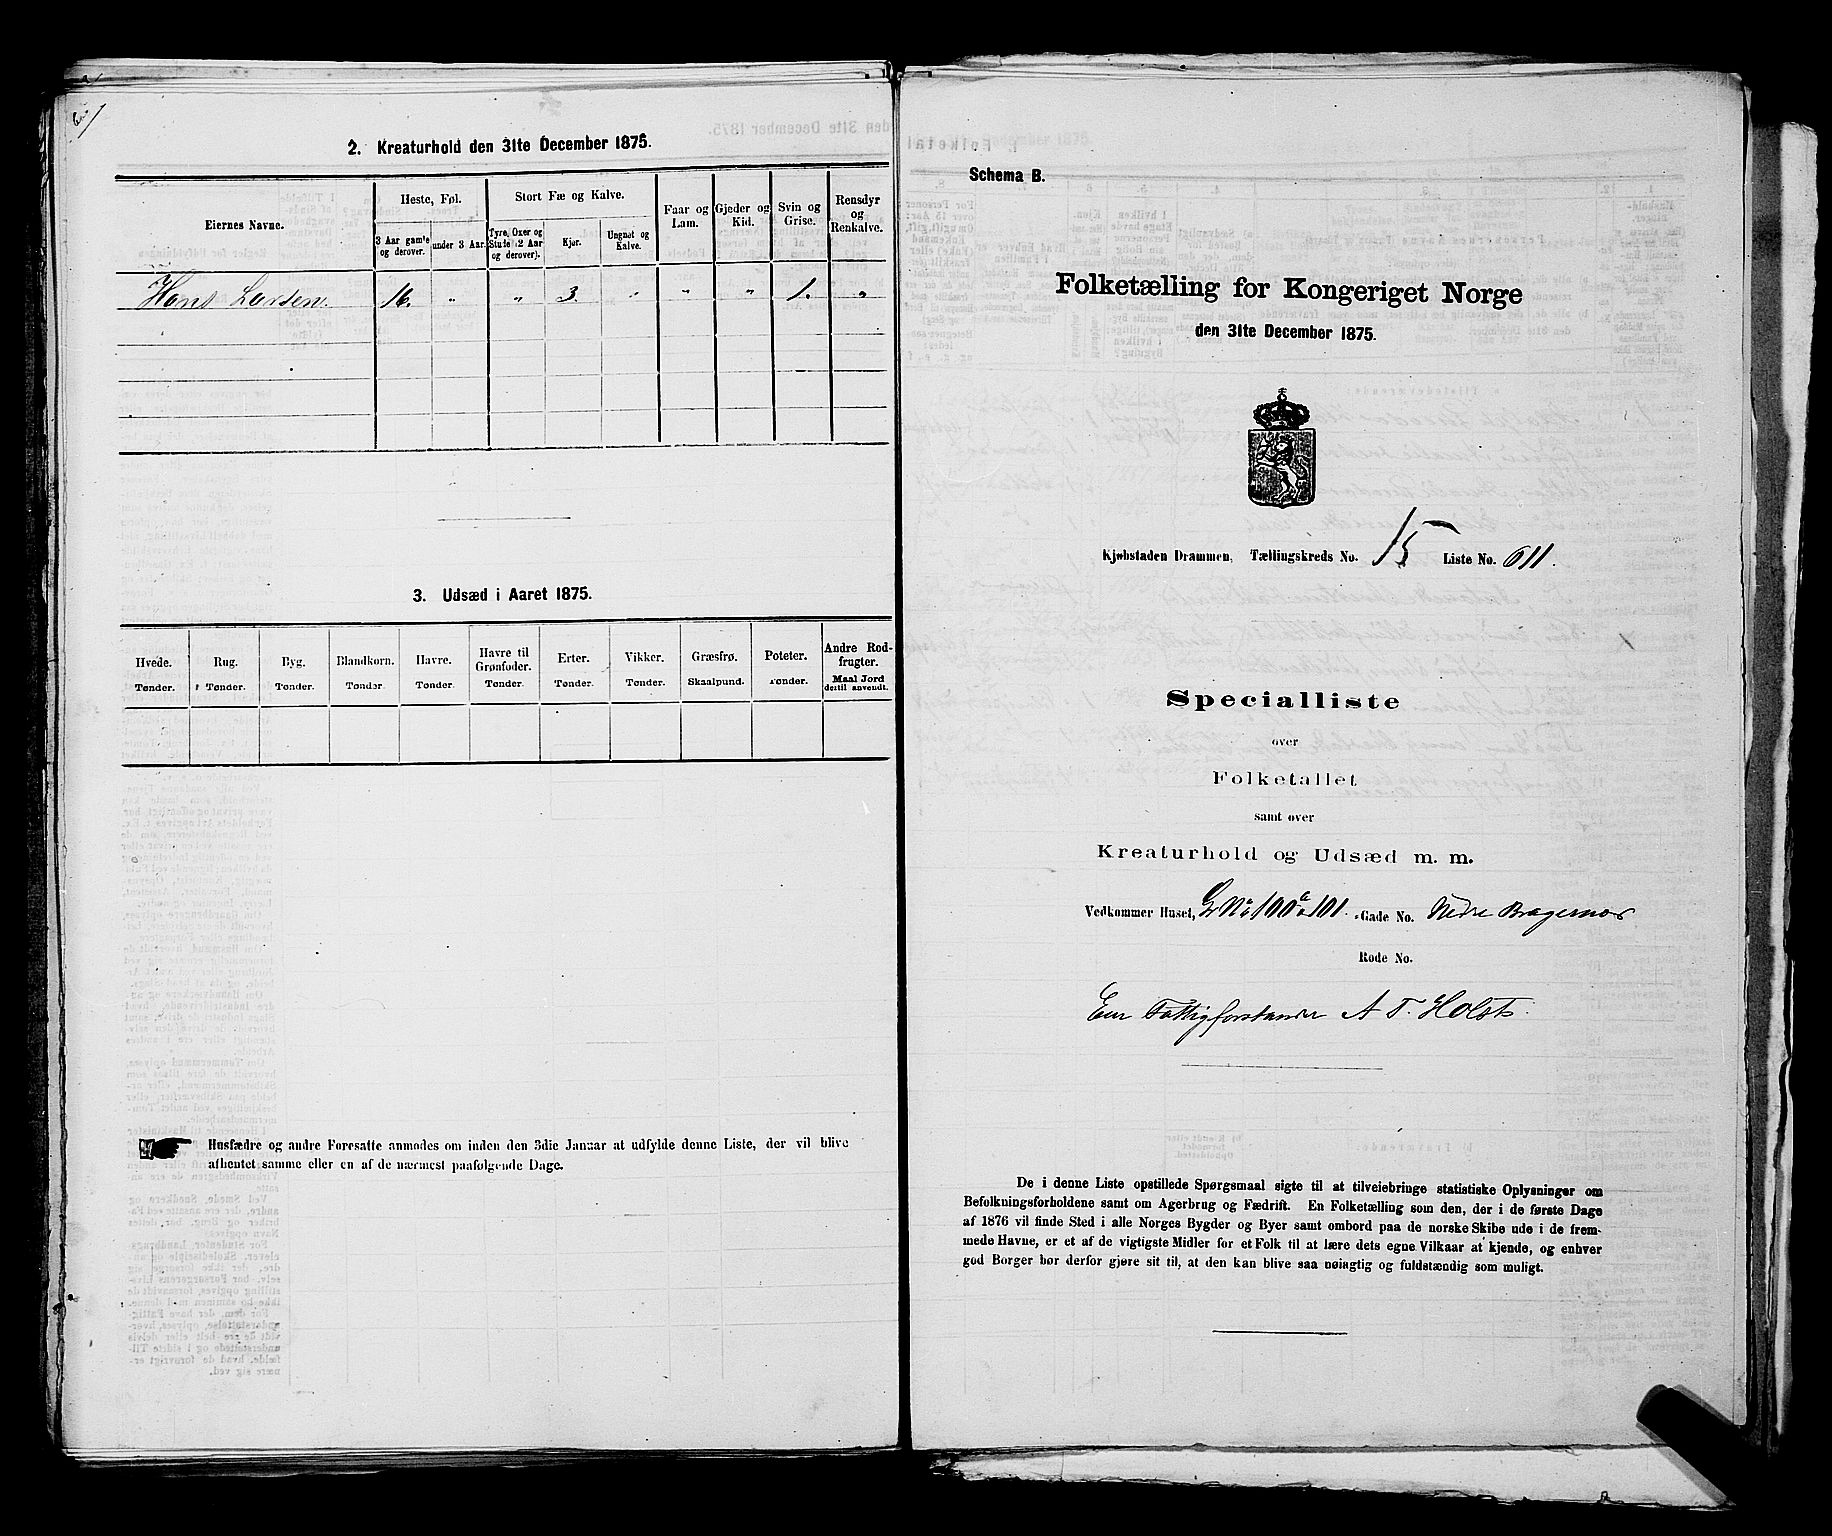 2. Kreaturhold den 31te December 1875.
Eiernes Navne.
Heste, Føl.
3 Aar gamle og derover.
under 3 Aar.
Stort Fæ og Kalve.
Tyre, Oxer og Stude (2 Aar og derover).
Kjør.
Ungnøt og Kalve.
Faar og Lam.
Gjeder og Kid.
Svin og Grise.
Rensdyr og Renkalve.
Hans Larsen. 16. " " 3. " " " 1. "
3. Udsæd i Aaret 1875.
Hvede. Rug. Byg. Blandkorn. Havre. Havre til Grønfoder. Erter. Vikker. Græsfrø. Poteter. Andre Rodfrugter.
Tønder. Tønder. Tønder. Tønder Tønder. Tønder. Tønder. Tønder. Skaalpund. Tønder. Maal Jord dertil anvendt.
Husfædre og andre Foresatte anmodes om inden den 3die Januar at udfylde denne Liste, der vil blive
afhentet samme eller en af de nærmest paafølgende Dage.
Schema B.
Folketælling for Kongeriget Norge
den 31te December 1875.
Kjøbstaden Drammen, Tællingskreds No. 15 Liste No. 611.
Specialliste
over
Folketallet
samt over
Kreaturhold og Udsæd m. m.
Vedkommer Huset, G No 100a 101. Gade No. Nedre Bragernæs
Rode No.
Eier Fattigforstander A T. Holst.
De i denne Liste opstillede Spørgsmaal sigte til at tilveiebringe statistiske Oplysninger om
Befolkningsforholdene samt om Agerbrug og Fædrift. En Folketælling som den, der i de første Dage
af 1876 vil finde Sted i alle Norges Bygder og Byer samt ombord paa de norske Skibe ude i de frem-
mede Havne, er et af de vigtigste Midler for et Folk til at lære dets egne Vilkaar at kjende, og enhver
god Borger bør derfor gjøre sit til, at den kan blive saa nøiagtig og fuldstændig som muligt.